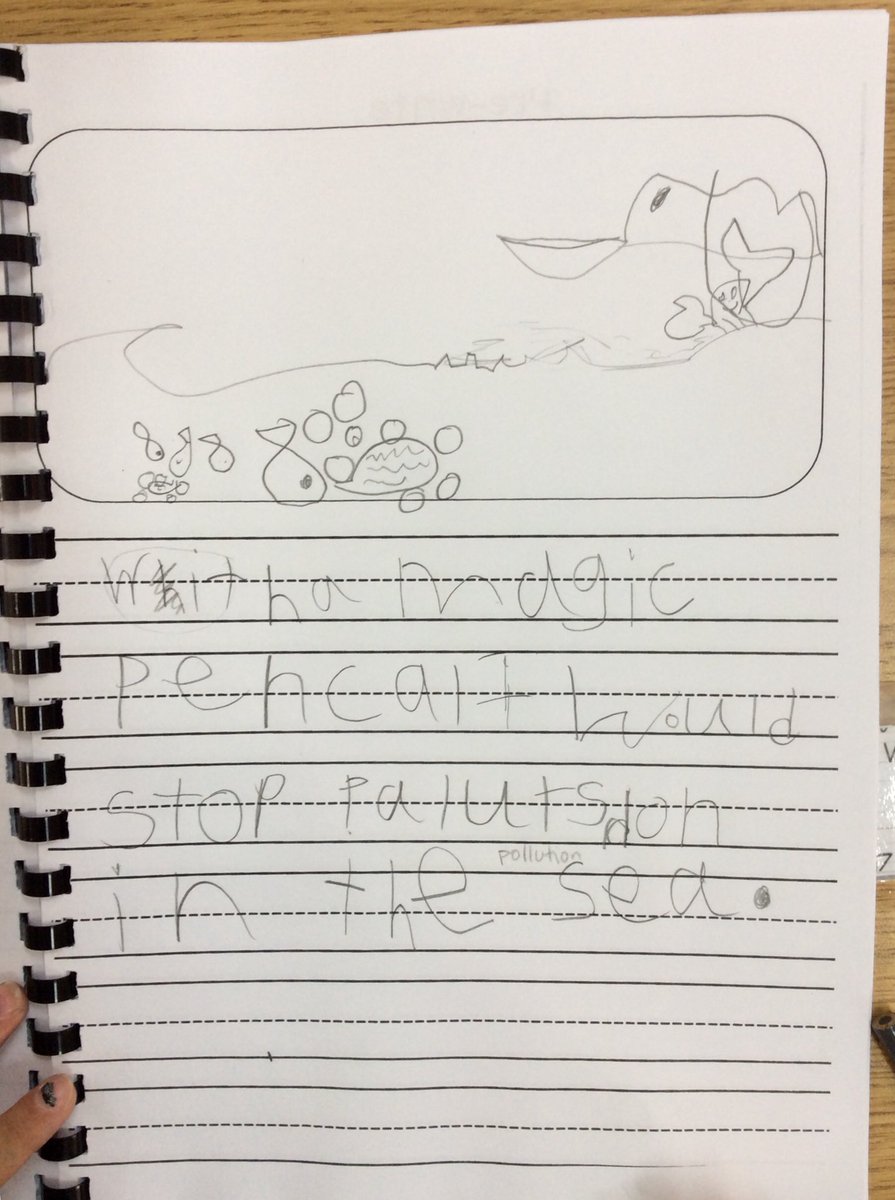 With a magic
Pencal I would
stop palutshon
pollution
in the sea.